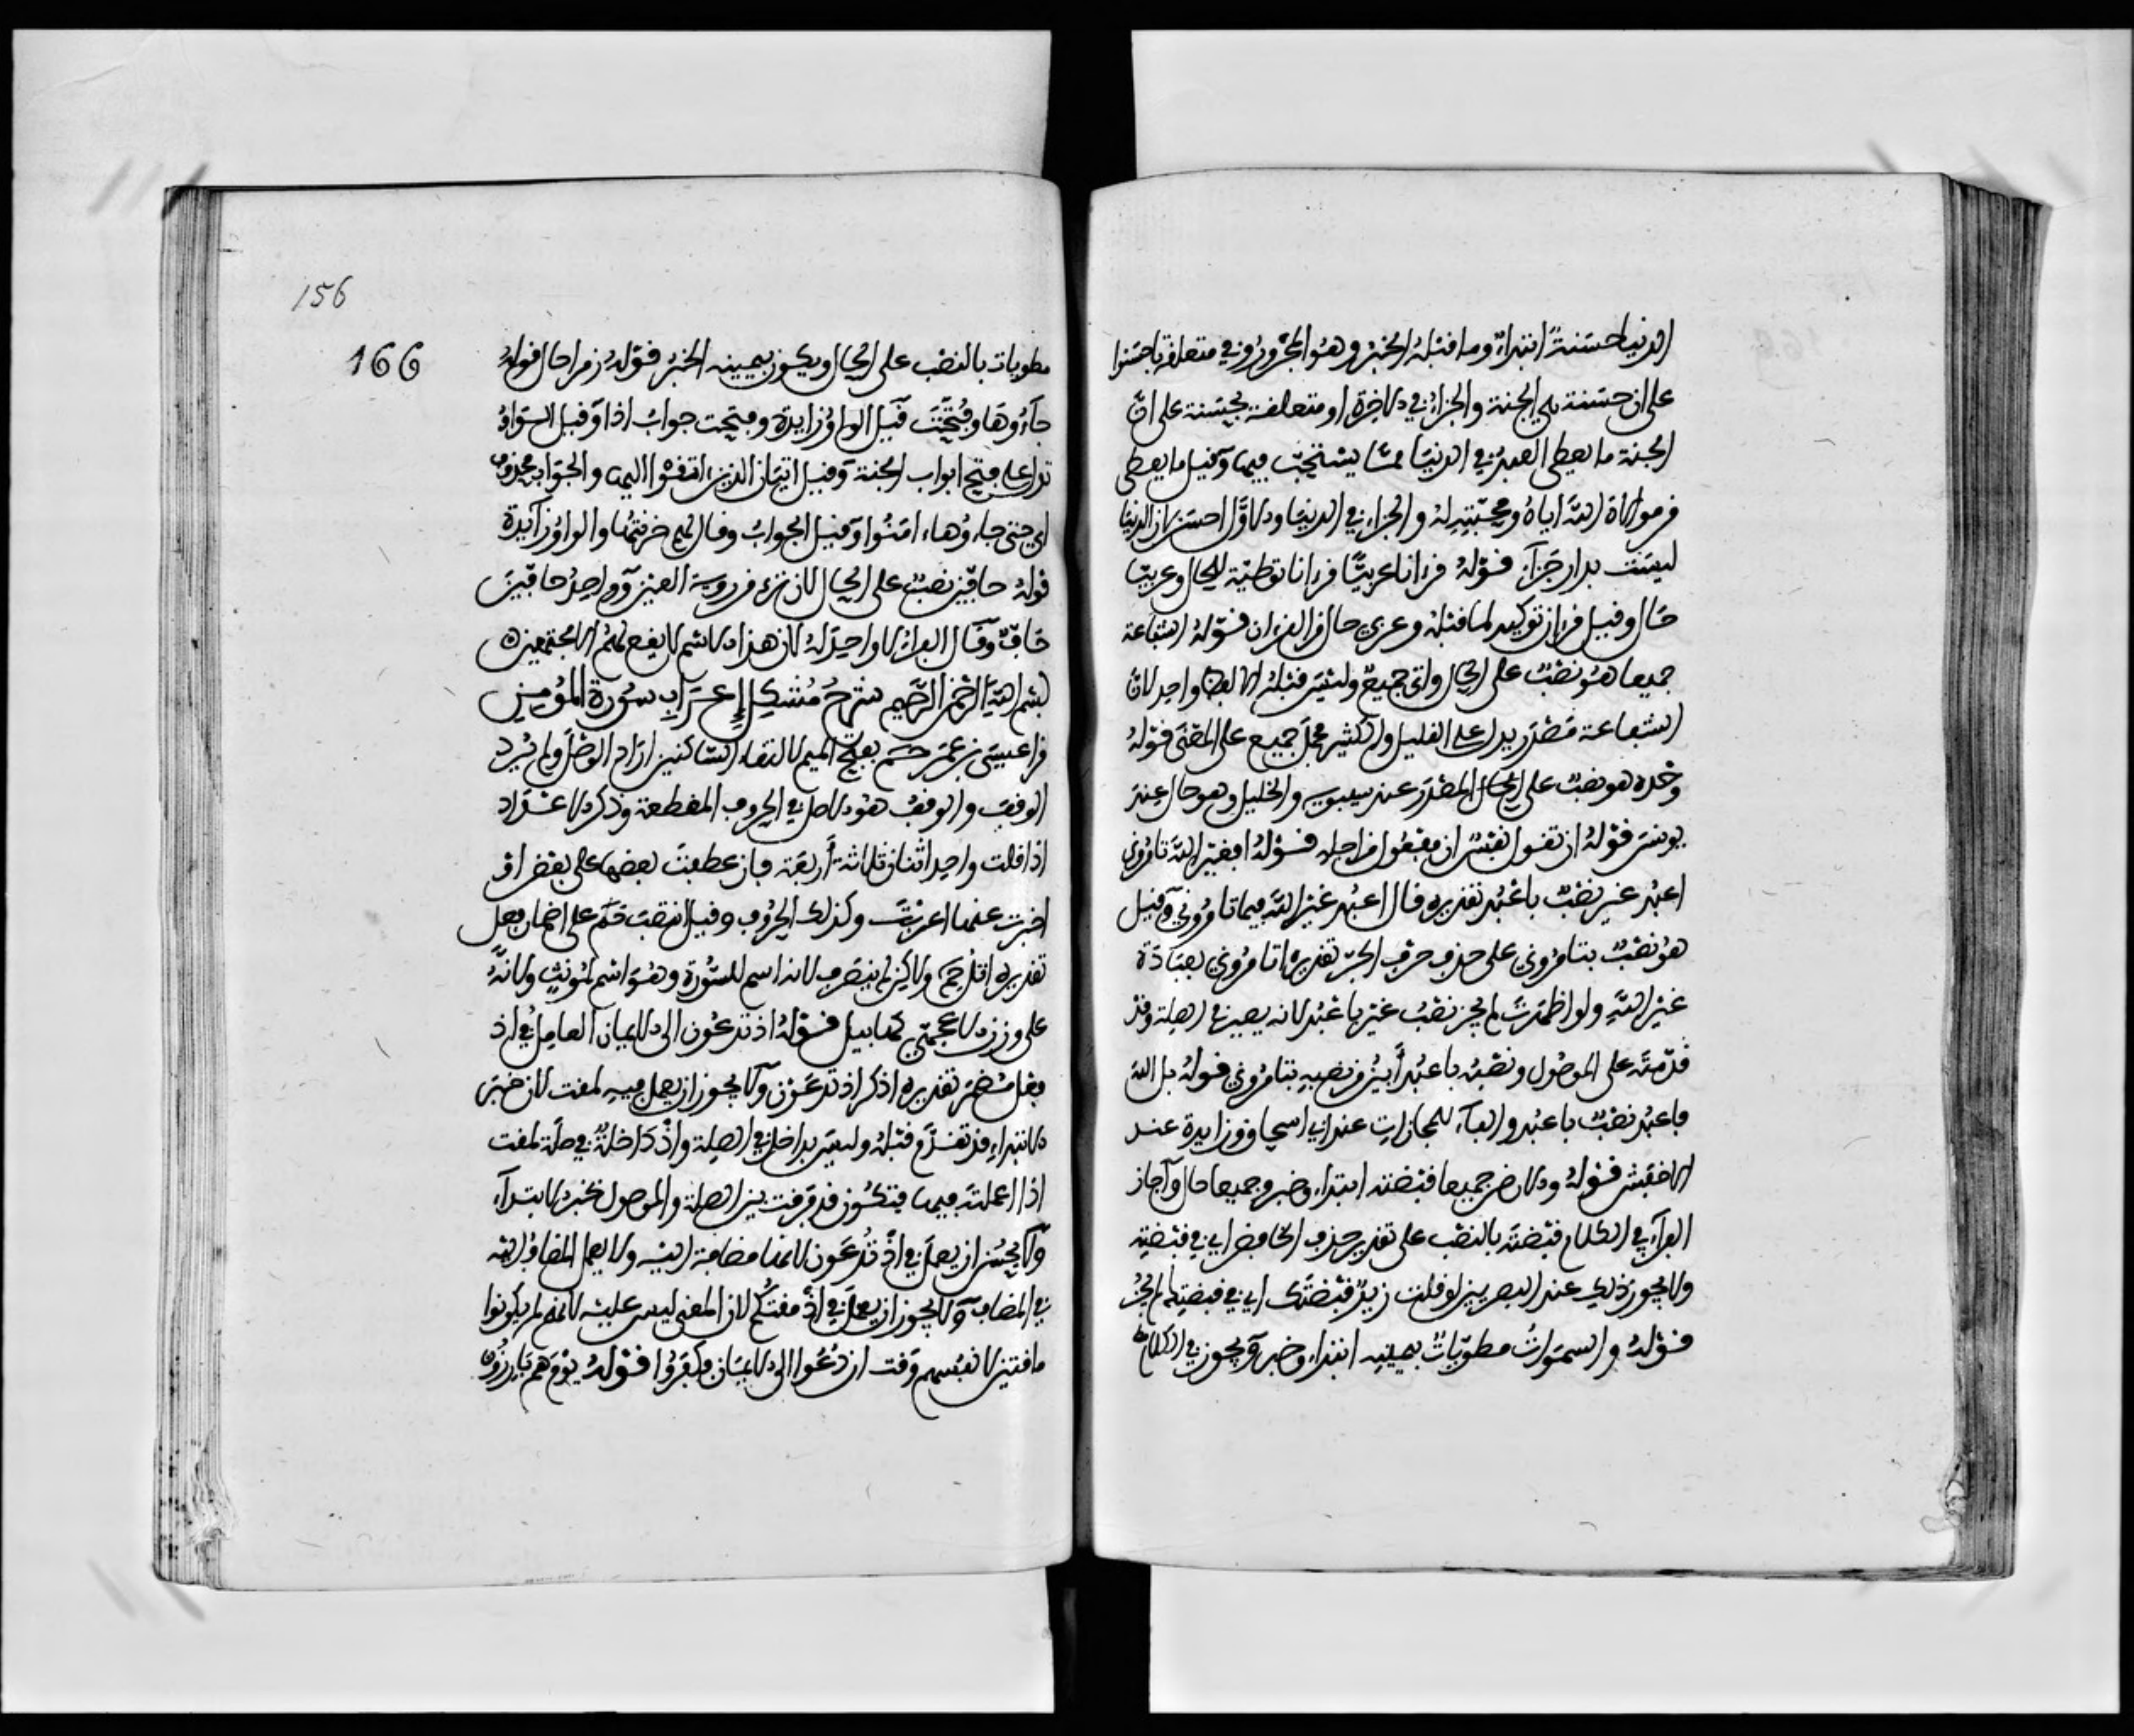 الدنيا حسنةٌ ابتداءٌ وما قبلهُ الخبرُ وهو المجرورُ وفي متعلقة باحسنوا
على ان حسنة هي الجنة والجزاءُ في الاخرة او متعلقة بحسنة على انّ
الحسنة ما يعطى العبدُ في الدنيا ممّا يستحبّ فيها وقيل ما يعطى
من موالاة الله اياهُ ومحبّتِهِ لهُ والجزاء في الدنيا والاوّل احسن لان الدنيا
ليست بدار جَزآءٍ قولهُ قرءانا عربيّا قرءانا توطئة للحال وعربيّا
حَال وقيل قرءان توكيد لما قبلهُ وعربي حال من القرءان قولهُ الشفاعة
جميعا هو نصبٌ على الحال واتى جميعٌ وليسَ قبلهُ الا لفظ واحد لان
الشفاعة مَصْدَر يدل على القليل والكثير فحمل جميع على المعنى قولهُ
وحْده هو نصبٌ على الحال المصْدر عند سيبويه والخليل وهو حال عند
يونسَ قولهُ ان تقول نفسٌ ان مفعُول من اجله قولهُ افغير اللهِ تامرُوني
اعبُد غير نصْبٌ باعْبُد تقديره قال اعبُد غيْرَ اللهِ فيما تامرُوني وقيل
هو نصْبٌ بتامرُوني على حذف حرْف الجرّ تقديره اتامرُوني بعبَادَة
غيْر اللهِ ولو اظهرتَ لم يجز نصْبُ غيْر باعْبُد لانه يصير في الصلة وقد
قدّمتَه على الموصُول ونصْبُه باعبُد أبينُ من نصبهِ بتامرُوني قولهُ بل اللهَ
فاعبُد نصْبٌ باعبُد والفآء للمجازات عند ابي اسحاق وزايدة عند
الاخفش قولهُ والارض جميعا قبْضته ابتداء وخبر وجميعا حال وآجاز
الفرآء في الكلام قبْضتَه بالنصْب على تقدير حذف الخافض اي في قبْضتِه
ولا يجوز ذلك عند البصريين لو قلت زيدٌ قبْضتَك اي في قبضتِك لم يجُز
قولهُ والسموَات مطوّياتٌ بيمينِه ابتداء وخبر ويجوز في الكلام
156
166
مطويات بالنصْب على الحال ويكون بيمينه الخبرُ قولهُ زمرا حال قولهُ
جآءُوهَا وفُتِحَت قيل الواوُ زايدة وفتحت جوابُ اذا وقيل الوَاوُ
تدل على فتح ابواب الجنة وقيل اتيَان الذين اتقوْا اليها والجوَاب محذوف
اي حتى جاءُوهاء امنُوا وقيل الجوابُ وقال لهم خزنتُها والواوُ زآيدة
قولهُ حافّين نصْبٌ على الحال لان ترى من روية العيْن وواحدُ حافّينَ
حَافٌّ وقَال الفراءُ لا واحدَ لهُ لان هذا الاسْم لا يقع لهمُ الا مجتمعين ه
بسم اللهِ الرحْمن الرحيم شرحُ مُشكِل إِعْرَاب سُورة المُؤمِن
قرا عيسَى بن عمَر حم بفتح الميم لالتقاء السّاكنين ارَاد الوصْل ولم يُرد
الوقفَ والوقفُ هو الاصل في الحروف المقطعة وذكر الاعْدَاد
اذا قلت واحد اثنان ثلاثةْ أربَعَة فان عطفتَ بعضها على بعْض اوْ
اخبرت عنها اعربتَ وكذلك الحرُوف وقيل انتصَبَ حَم على اضمار فعل
تقديره اتل حم ولاكن لم ينصَرف لانه اسم للسّورة وهو اسم لمونثٍ ولانّهُ
على وزن الاعجميّ كهابيل قولهُ اذ تدعُون الى الايمان العامِلُ في اذ
فعل مضْمَر تقديره اذكر اذ تدعَوْن ولا يجوز ان يعمل فيهِ لمقت لان خبَر
الابتداءِ قد تقدّم قبْلهُ وليسَ بداخل في الصلة واذْ دَاخلةٌ في صلَة لمقت
اذا اعملتَه فيها فتكُون قد فرَقت بين الصلة والموصول بخبر الابتدآء
ولا يحسُن ان يعملَ في اذْ تُدعَون لانها مضافة اليْه ولا يعمل المضاف اليه
في المضاف ولا يجوز ان يعملَ في اذْ مقتُكُم لان المعنى ليس عليْه لانهُم لم يكونوا
ماقتين لانفسهم وَقت ان دُعُوا الى الايمان فكفرُوا قولهُ يوْمَ هم بَارِزُونَ